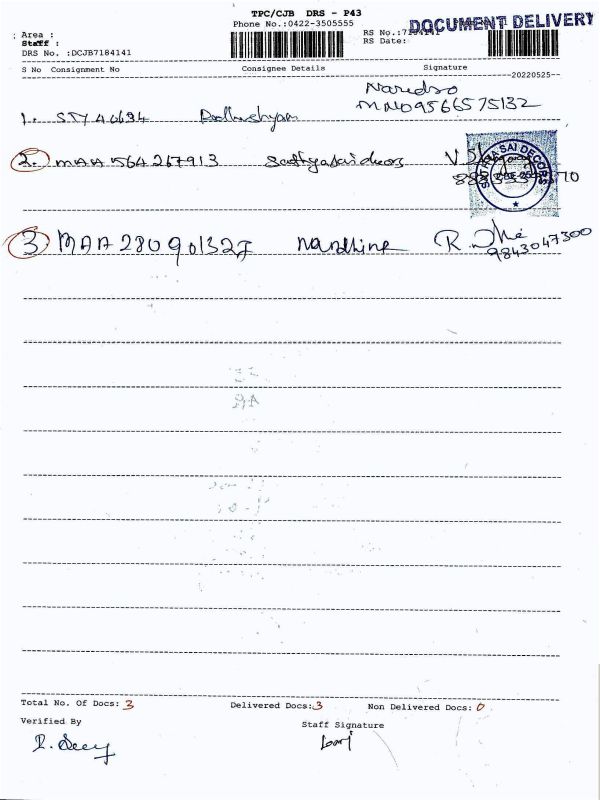 TPC/CJB DRS - P43
Phone No.:0422-3505555
DOCUMENT DELIVERY
Area :
Staff :
DRS No. :DCJB7184141
RS No.:7184141
RS Date:
S No Consignment No Consignee Details Signature
--20220525--
MNO9566575132
1.
2. MAA564267913 Sathyasaidecors V.
SAI DECORS
3. MAA280901327 Nandhine R.
9843047300
Total No. Of Docs: 3 Delivered Docs: 3 Non Delivered Docs: 0
Verified By Staff Signature